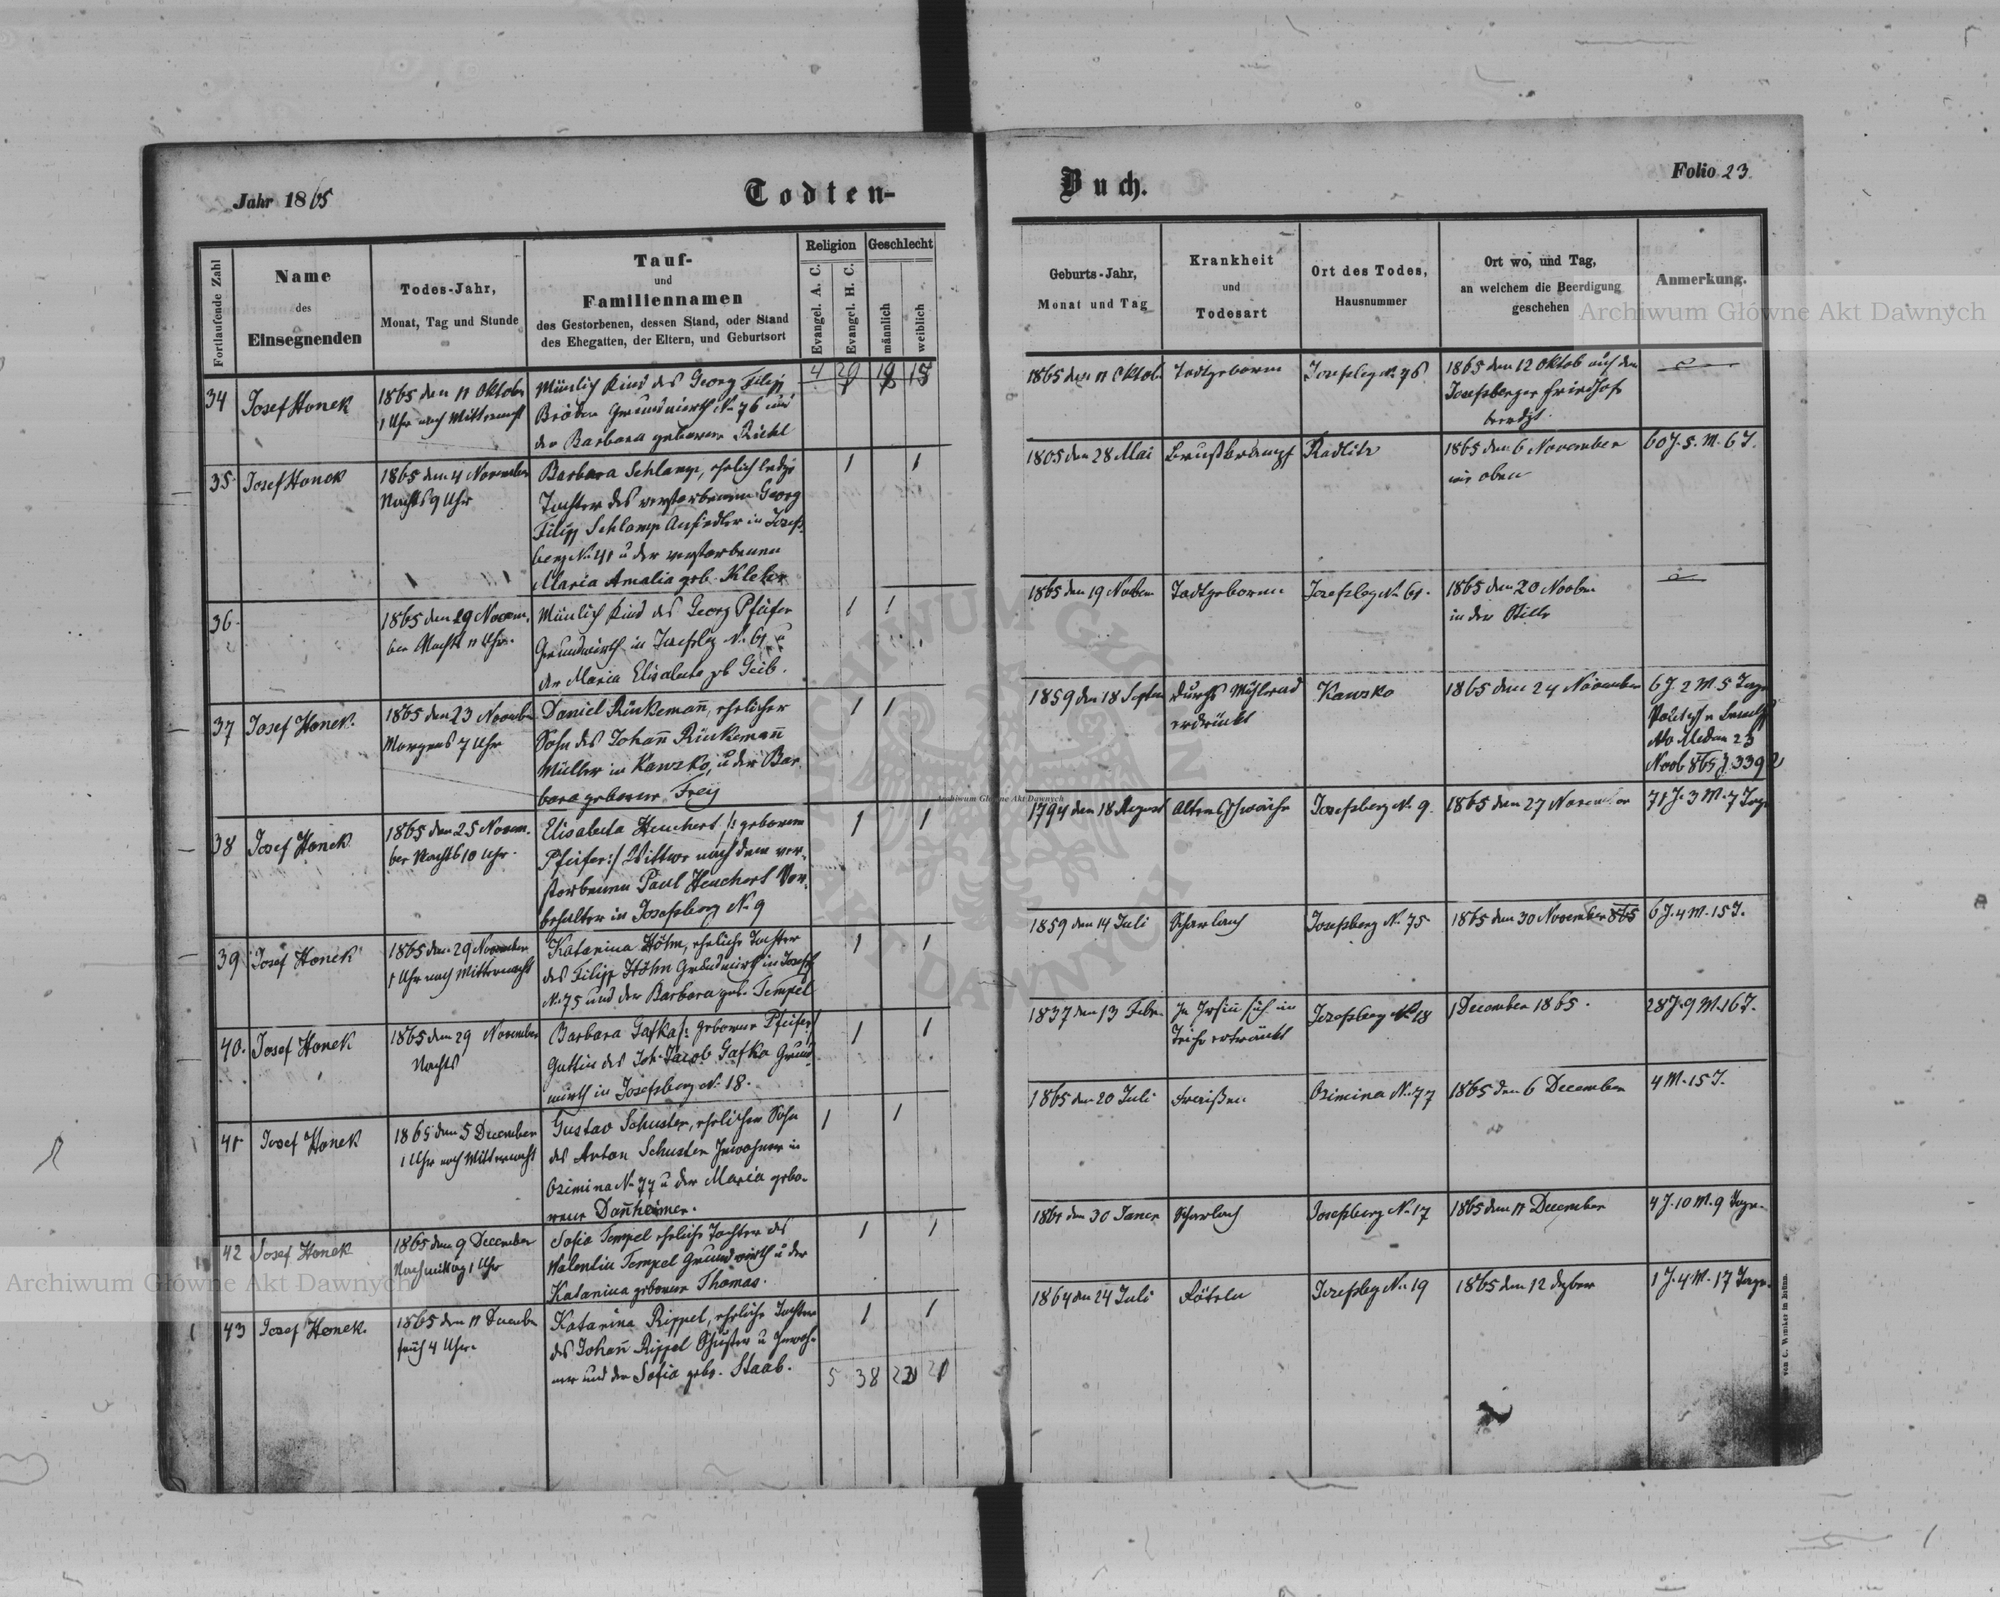 Jahr 1865
Todten-
Buch.
Folio 23.
Fortlaufende Zahl
Name
des
Einsegnenden
Todes-Jahr,
Monat, Tag und Stunde
Tauf-
und
Familiennamen
des Gestorbenen, dessen Stand, oder Stand
des Ehegatten, der Eltern, und Geburtsort
Religion
Evangel. A. C.
Evangel. H. C.
Geschlecht
männlich
weiblich
Geburts-Jahr,
Monat und Tag
Krankheit
und
Todesart
Ort des Todes,
Hausnummer
Ort wo, und Tag,
an welchem die Beerdigung
geschehen
Anmerkung.
34
Josef Honek
1865 den 11 Oktober
1 Uhr nach Mitternacht
Mänlich Kind des Georg Filipp
Grundwirth No 76 und
der Barbara geborene
1865 den 11 Oktob
Todtgeboren
Josefsbg No 76
1865 den 12 Oktob auf dem
Josefsberger Friedhofe
beerdigt
35
Josef Honek
1865 den 4 November
Nachts 9 Uhr
Barbara Schlamp, ehelich ledige
Tochter des verstorbenen Georg
Filipp Schlamp Ansiedler in Josefs-
berg No 41 u der verstorbenen
Maria Amalia geb.
1
1
1805 den 28 Mai
Brustkrampf
Radlitz
1865 den 6 November
wie oben
60 J. 5. M. 6 T.
36
1865 den 19 Novem-
ber Nachts 11 Uhr.
Mänlich Kind des Georg Pfeifer
Grundwirth in Josefsbg No 61 u
der Maria Elisabeta gb Geib.
1
1
1865 den 19 Novbem
Todtgeboren
Josefsbg No 61.
1865 den 20 Novbr
in der Stille
37
Josef Honek.
1865 den 23 November
Morgens 7 Uhr
Daniel Rinkemañ, ehelicher
Sohn des Johañ Rinkemañ
Müller in Kawsko, u der Bar-
bara geborene Frey
1
1
1859 den 18 Septem
durchs Mühlrad
erdrückt
Kawsko
1865 den 24 November
6 J. 2 M 5 Tage
38
Josef Honek
1865 den 25 Novem-
ber Nachts 10 Uhr.
Elisabeta Heuchert /: geborene
Pfeifer :/ Wittwe nach dem ver-
storbenen Paul Heuchert Vor-
behalter in Josefsberg No 9
1
1
1794 den 18 August
Altersschwäche
Josefsberg No 9
1865 den 27 November
71 J. 3 M. 7 Tage
39
Josef Honek
1865 den 29 November
1 Uhr nach Mitternacht
Katarina Höhn, eheliche Tochter
des Filipp Höhn Grundwirth in Josefsb
No 75 und der Barbara geb. Tempel
1
1
1859 den 14 Juli
Scharlach
Josefsberg No 75
1865 den 30 November 865
6 J. 4 M. 15 T.
40.
Josef Honek
1865 den 29 November
Nachts
Barbara Gafka /: geborene Pfeifer :/
Gattin des Joh. Jacob Gafka Grund-
wirth in Josefsberg No 18.
1
1
1837 den 13 Febr.
In Irrsiñ sich im
Teiche ertränkt
Josefsberg No 18
1 December 1865.
28 J. 9 M. 16 T.
41
Josef Honek
1865 den 5 December
1 Uhr nach Mitternacht
Gustav Schuster, ehelicher Sohn
des Anton Schuster Inwohner in
Ozimina No 77 u der Maria gebo-
rene Dañheimer.
1
1
1865 den 20 Juli
Fraißen
Ozimina No 77
1865 den 6 December
4 M. 15 T.
42
Josef Honek
1865 den 9 December
Nachmittag 1 Uhr
Sofia Tempel eheliche Tochter des
Valentin Tempel Grundwirth u der
Katarina geborene Thomas.
1
1
1861 den 30 Janer
Scharlach
Josefsberg No 17
1865 den 11 December
4 J. 10 M. 9 Tage
43
Josef Honek.
1865 den 11 December
früh 4 Uhr.
Katarina Rippel, eheliche Tochter
des Johañ Rippel Schuster u Inwoh-
ner und der Sofia gebr. Staab.
1
1
1864 den 24 Juli
Röteln
Josefsbg No 19
1865 den 12 Dezber
1 J. 4 M. 17 Tage.
5 38 22 21
Archiwum Główne Akt Dawnych
Archiwum Główne Akt Dawnych
Archiwum Główne Akt Dawnych
ARCHIWUM GŁÓWNE AKT DAWNYCH